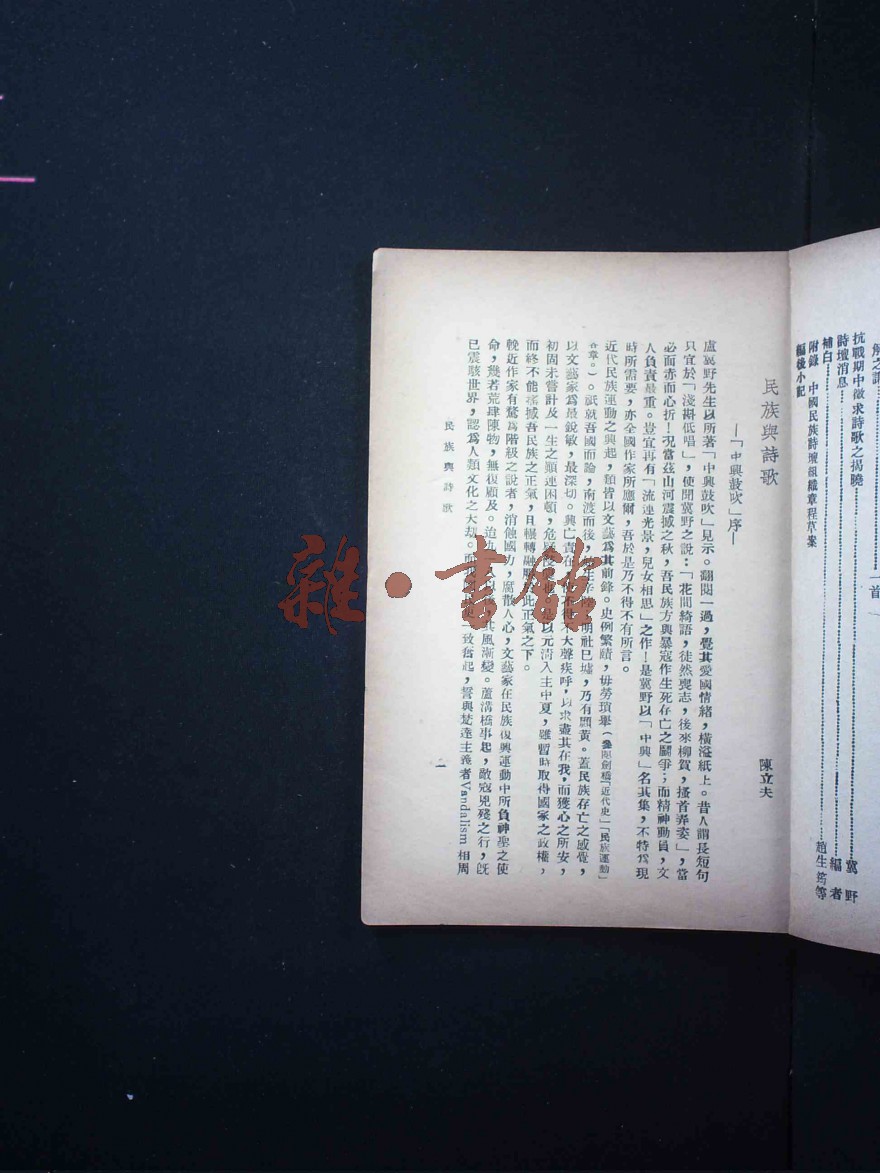 解之謂
一首
抗戰期中徵求詩歌之揭曉 冀野
詩壇消息 編者
補白 趙生筠等
附錄 中國民族詩壇組織章程草案
編後小記
民族與詩歌
—「中興鼓吹」序—
陳立夫
盧冀野先生以所著「中興鼓吹」見示。翻閱一過,覺其愛國情緒,橫溢紙上。昔人謂長短句
只宜於「淺斟低唱」,使聞冀野之說:「花間綺語,徒然喪志,後來柳賀,搔首弄姿」,當
必面赤而心折!況當茲山河震撼之秋,吾民族方與暴寇作生死存亡之鬭爭;而精神動員,文
人負責最重。豈宜再有「流連光景,兒女相思」之作!是冀野以「中興」名其集,不特爲現
時所需要,亦全國作家所應爾,吾於是乃不得不有所言。
近代民族運動之興起,類皆以文藝爲其前鋒。史例繁賾,毋勞瑣舉(參閱劍橋「近代史」「民族運動」
各章。)。祇就吾國而論,南渡而後,生辛陸明社已墟,乃有顧黃。蓋民族存亡之感覺,
以文藝家爲最銳敏,最深切。興亡責在,不得不大聲疾呼,以求盡其在我,而獲心之所安,
初固未嘗計及一生之顛連困頓,危以元清入主中夏,雖暫時取得國家之政權,
而終不能搖撼吾民族之正氣,且輾轉融此正氣之下。
輓近作家有騖爲階級之說者,消蝕國力,腐散人心,文藝家在民族復興運動中所負神聖之使
命,幾若荒肆陳物,無復顧及。迨九以其風漸變。蘆溝橋事起,敵寇兇殘之行,旣
已震駭世界,認爲人類文化之大劫。而一致奮起,誓與梵達主義者Vandalism相周
民族與詩歌
一